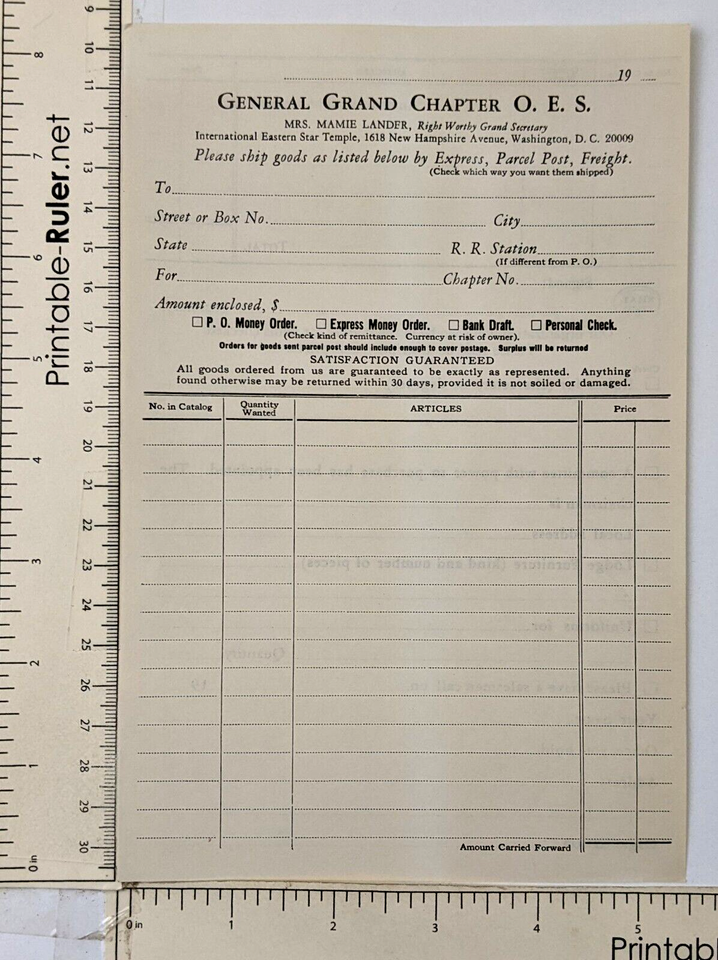 19
GENERAL GRAND CHAPTER O. E. S.
MRS. MAMIE LANDER, Right Worthy Grand Secretary
International Eastern Star Temple, 1618 New Hampshire Avenue, Washington, D. C. 20009
Please ship goods as listed below by Express, Parcel Post, Freight.
(Check which way you want them shipped)
To
Street or Box No. City
State R. R. Station
(If different from P. O.)
For Chapter No.
Amount enclosed, $
☐ P. O. Money Order. ☐ Express Money Order. ☐ Bank Draft. ☐ Personal Check.
(Check kind of remittance. Currency at risk of owner).
Orders for goods sent parcel post should include enough to cover postage. Surplus will be returned
SATISFACTION GUARANTEED
All goods ordered from us are guaranteed to be exactly as represented. Anything
found otherwise may be returned within 30 days, provided it is not soiled or damaged.
No. in Catalog Quantity Wanted ARTICLES Price
Amount Carried Forward
Printable-Ruler.net
8
7
6
5
4
3
2
1
0 in
9
10
11
12
13
14
15
16
17
18
19
20
21
22
23
24
25
26
27
28
29
30
0 in 1 2 3 4 5
Printabl